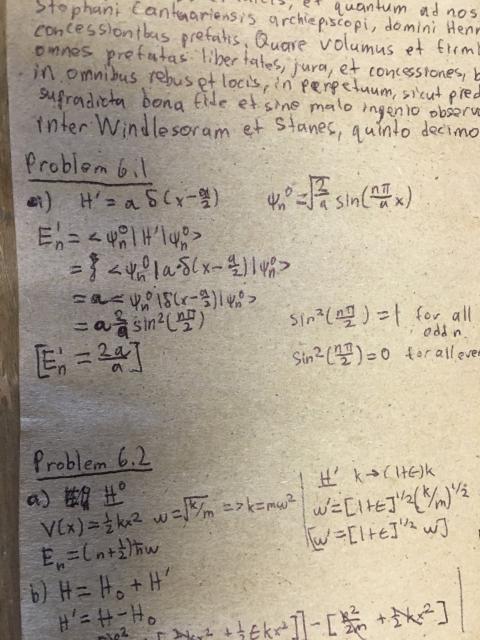 et quantum ad nos
Stephani Cantuariensis archiepiscopi, domini Henr
concessionibus prefatis. Quare volumus et firmi
omnes prefatas libertates, jura, et concessiones, b
in omnibus rebus et locis, in perpetuum, sicut pred
supradicta bona fide et sine malo ingenio observa
inter Windlesoram et Stanes, quinto decimo
Problem 6.1
a) H' = a δ(x-a/2) ψn⁰=√(2/a) sin(nπ/a x)
En¹ = <ψn⁰|H'|ψn⁰>
= <ψn⁰|a δ(x-a/2)|ψn⁰>
= a<ψn⁰|δ(x-a/2)|ψn⁰>
= a 2/a sin²(nπ/2) sin²(nπ/2)=1 for all odd n
[En¹ = 2a/a] sin²(nπ/2)=0 for all even
Problem 6.2
a) H⁰
V(x)=½kx² ω=√k/m => k=mω²
En=(n+½)ħω
H' k→(1+ϵ)k
ω'=[1+ϵ]^1/2 (k/m)^1/2
[ω'=[1+ϵ]^1/2 ω]
b) H = H₀ + H'
H' = H-H₀
+ ½ϵkx²]] - [p²/2m + ½kx²]